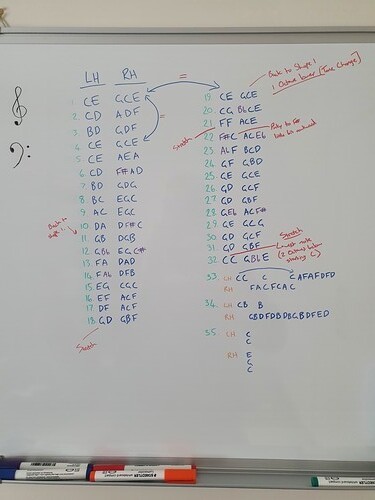 LH RH
1. CE GCE
2. CD ADF
3. BD GDF
4. CE GCE
5. CE AEA
6. CD F#AD
7. BD GDG
8. BC EGC
9. AC EGC
10. DA DF#C
11. GB DGB
12. GBb EGC#
13. FA DAD
14. FAb DFB
15. EG CGC
16. EF ACF
17. DF ACF
18. GD GBF
Stretch
Back to
=
=
Back to Shape 1
1 Octave lower (Tune Change)
19. CE GCE
20. CG BbCE
21. FF ACE
Stretch
22. F#C ACEb
23. AbF BCD
24. GF GBD
25. GE GCE
26. GD GCF
27. GD GBF
28. GEb ACF#
29. GE GCG
30. GD GCF
Stretch
31. GD GBF
Lowest note
(2 Octaves below
starting C)
32. CC GBbE
33. LH CC C CAFAFDFD
RH FACFCAC
34. LH CB B
RH GBDFDBDBGBDFED
35. LH C
C
RH E
G
C
STAEDTLER